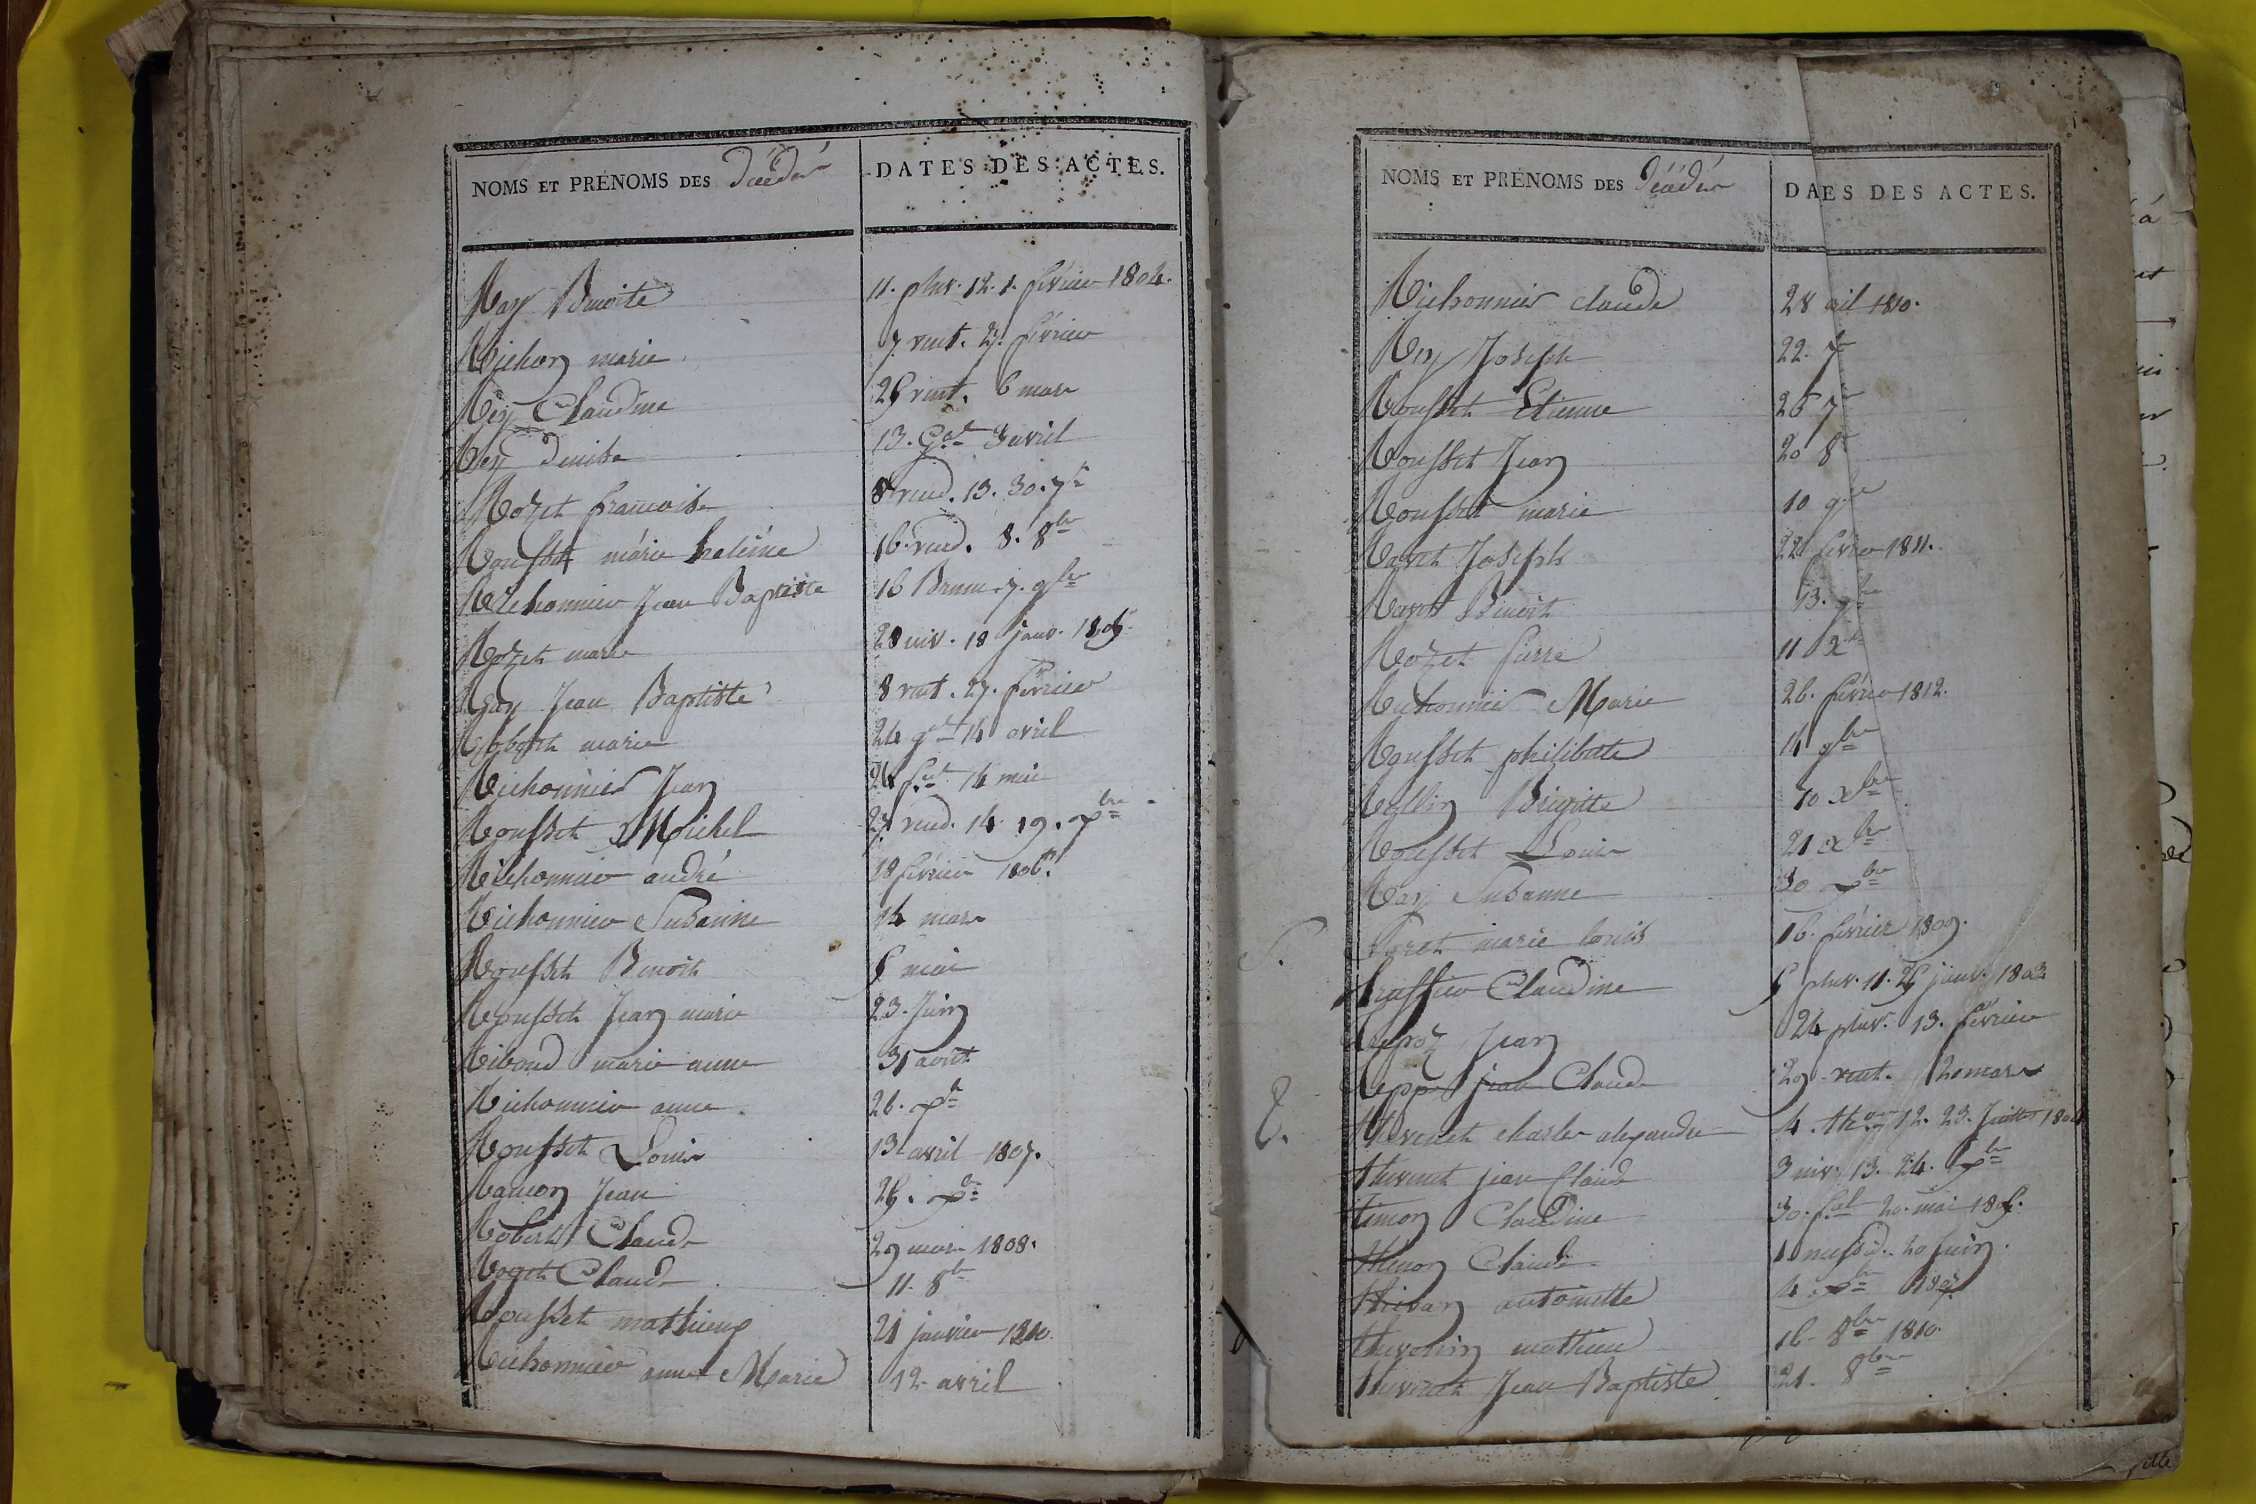 NOMS ET PRÉNOMS DES Décédés
DATES DES ACTES.
Ray Benoite 11. pluv. 12. 1. février 1804.
Richon marie 7. vent. 27. février
Rey Claudine 25 vent. 6 mars
Rey Denise 13. Gal 3 avril
Rozet françoise 8 vend. 13. 30. 7bre
Rousset marie heleine 16. vend. 8. 8bre
Richonnier Jean Baptiste 16 Brum. 7. 9bre
Rozet marie 28 niv. 18 janv. 1805.
Ray Jean Baptiste 8 vent. 27. février
marie 24 gal 14 avril
Richonnier Jean 24 fal 14 mai
Rousset Michel 27 vend. 14. 19. 8bre
Richonnier andré 18 février 1806.
Richonnier Susanne 14 mars
Rousset Benoit 5 mai
Rousset Jean marie 23. Juin
Riboud marie anne 31 août
Richonnier anne 26. xbre
Rousset Louis 13 avril 1807.
Jean 25. xbre
Robert Claude 29 mars 1808.
Claude 11. 8bre
Rousset mathieu 21 janvier 1810.
Richonnier anne Marie 12 avril
NOMS ET PRÉNOMS DES Décédés
DAES DES ACTES.
Richonnier claude 28 ail 1810.
Rey Joseph 22. 7
Rousset Etienne 26 7
Rousset Jean 20 8
Rousset marie 10 9
Ravet Joseph 22 février 1811.
Ravet Benoit 13. 9bre
Rozet pierre 11 X
Richonnier Marie 26. février 1812.
Rousset philiberte 14 9bre
Rollin Brigitte 10 Xbre
Rousset Louis 21 xbre
Ray Susanne 30 xbre
S. marie louis 16. février 1809.
Claudine 5 pluv. 11. 25 janv. 1803
Jean 24 pluv. 13. février
jean Claude 29 vent. 20 mars
T. Thevenet charles alexandre 4. ther 12. 23. Juillet 1804
thevenet jean Claude 3 niv. 13. 24. xbre
thenon Claudine 30. fal 20. mai 1805.
thenon Claude 1 messid. 20 juin.
antoinette 4. xbre 1807
mathieu 16. 8bre 1810.
thevenet Jean Baptiste 21. 8bre